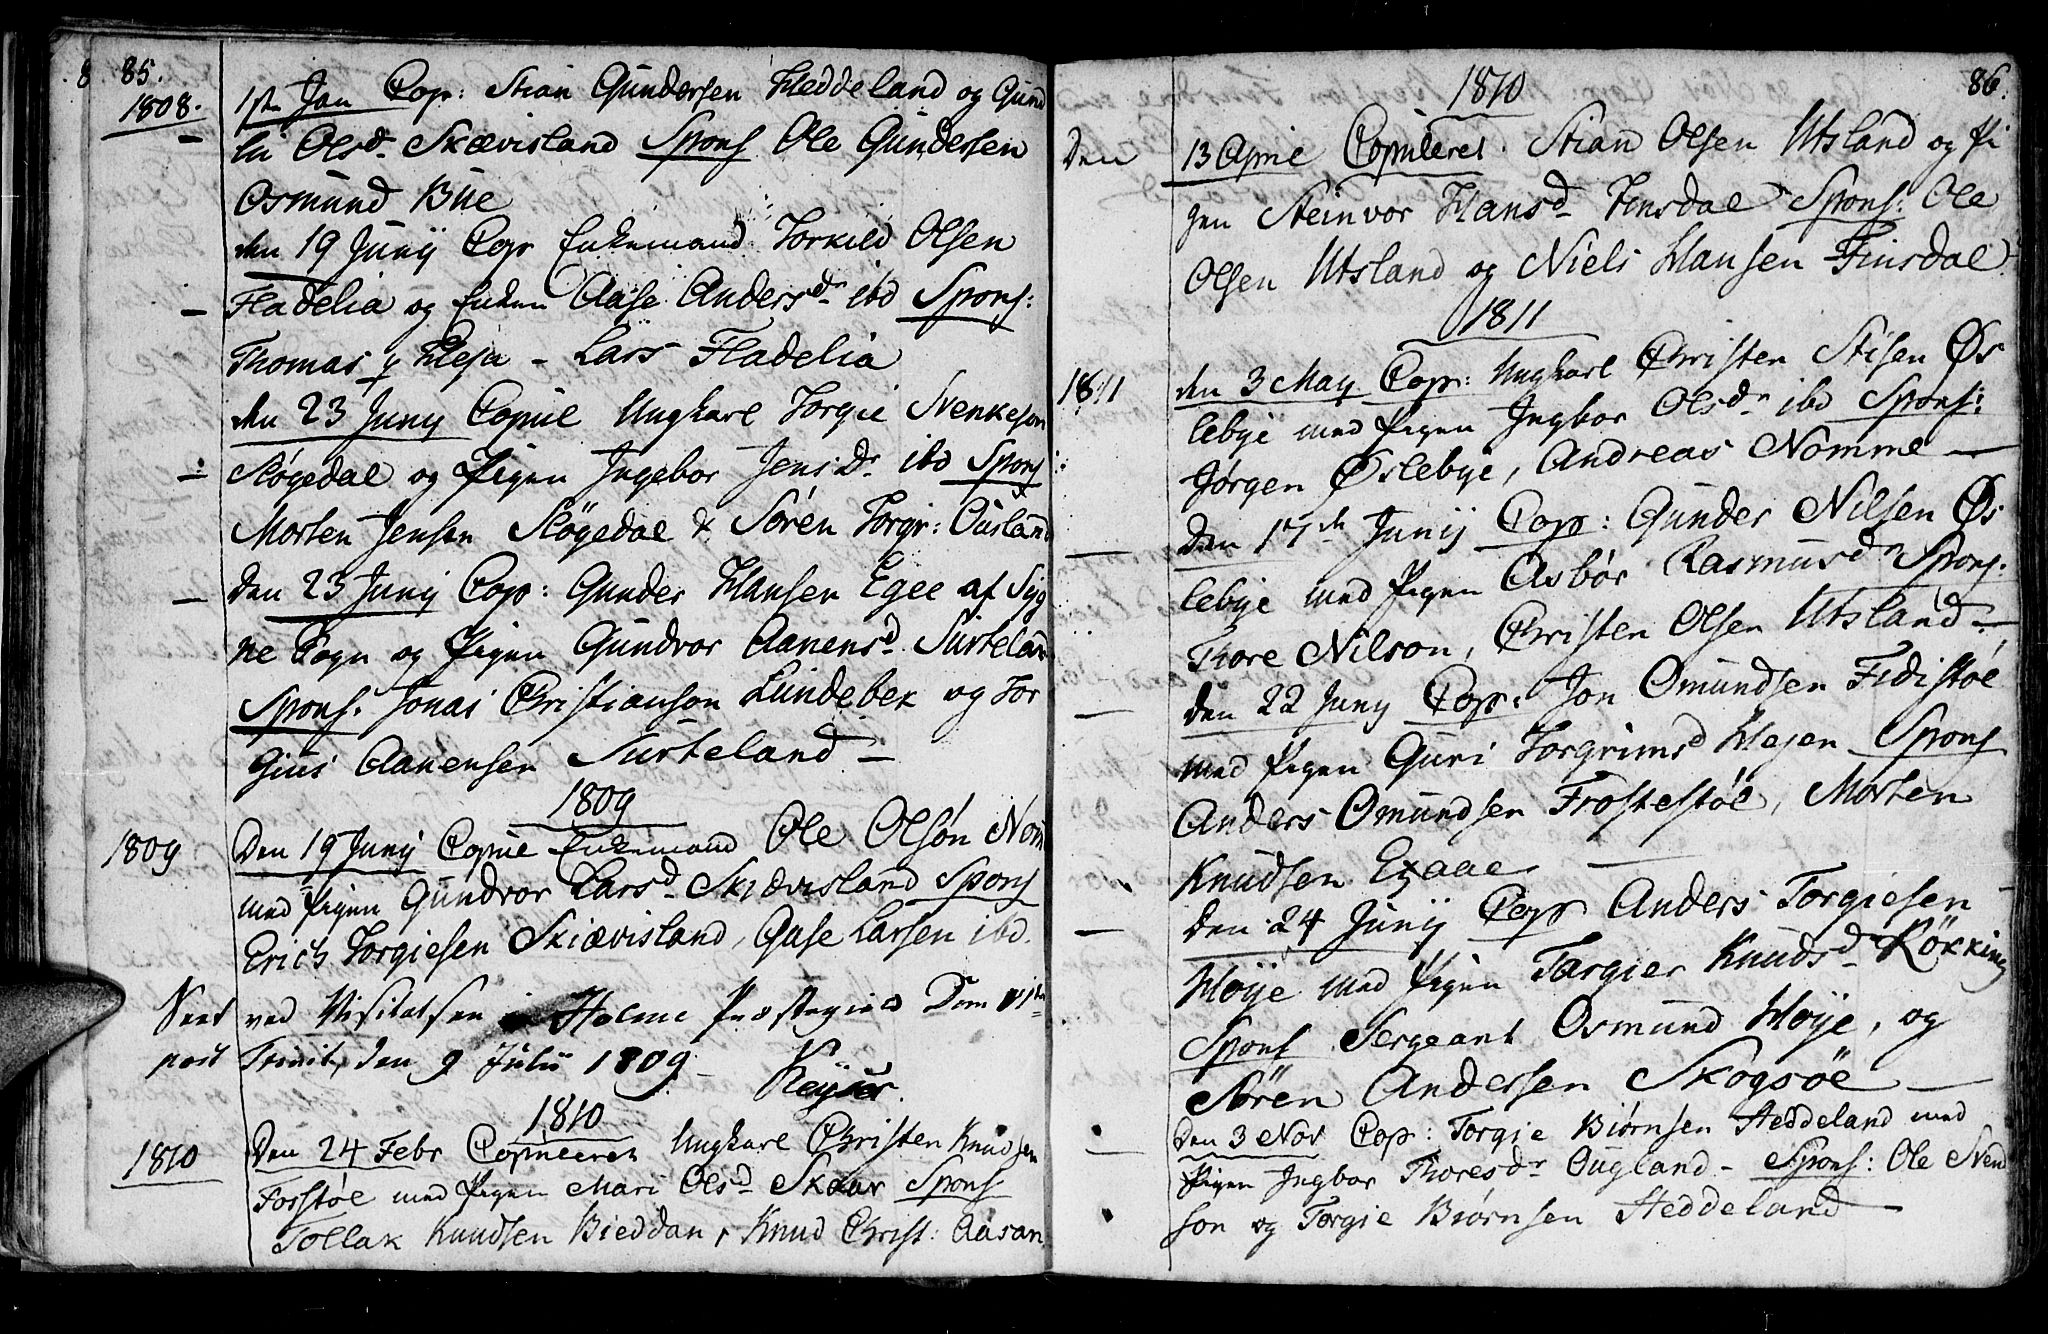 85.
1808.
1ste Jan Cop: Stian Gundersen Heddeland og Gund
li Olsd. Skævisland Spons Ole Gundersen
Osmund Bue
den 19 Junij Cop Enkemand Torkild Olsen
Fladelia og Enken Aase Andersdr ibd Spons:
Thomas Hesja - Lars Fladelia
den 23 Junij Copul Ungkarl Torgie Svenkeson
Skøgedal og Pigen Ingebor Jensdr ibd Spons:
Morten Jensen Skøgedal & Søren Torgr: Ousland
Den 23 Junij Cop: Gunder Hansen Egee af Syg
ne Sogn og Pigen Gundvor Aanensd. Surteland
Spons. Jonas Christianson Lundebek og Tor
Gius Aanensen Surteland -
1809
1809
Den 19 Junij Copul Enkemand Ole Olsøn Nom
med Pigen Gundvor Larsd. Skiævisland Spons
Erich Torgiesen Skiævisland, Aase Larsen ibd.
Seet ved Visitatsen i Holme Præstegield Dom VI te
post Trinit, den 9 Julii 1809 -
Keyser.
1810
1810
Den 24 Febr Copuleeret Ungkarl Christen Knudsen
Forstøl med Pigen Mari Olsd. Skaar Spons
Tollak Knudsen Bieddan, Knud Christ: Aasan
86.
1810
Den 13 April Copuleret. Stian Olsen Utsland og Pi
gen Steinvor Hansd. Finsdal Spons: Ole
Olsen Utsland og Niels Hansen Finsdal
1811
1811
den 3 May Cop: Ungkarl Christen Stisen Øs
lebye med Pigen Ingbor Olsdr ibd Spons:
Jørgen Øslebye, Andreas Nomme -
Den 17de Junij Cop: Gunder Nilsen Øs
lebye med Pigen Asbør Rasmusdr Spons:
Thore Nilson, Christen Olsen Utsland -
den 22 Juny Cop: Jon Omundsen Fidistøl
med Pigen Guri Torgrimsd Hesen Spons
Anders Omundsen Frostestøl, Morten
Knudsen Egaae
Den 24 Junij Cop Anders Torgiesen
Høije med Pigen Targier Knudsd. Røkking
Spons Sergeant Osmund Høije, og
Søren Andersen Skogsøe -
Den 3 Nov Cop: Torgie Biørnsen Heddeland med
Pigen Ingbor Thoresdr Ougland - Spons: Ole Svend
son og Torgie Biørnsen Heddeland -